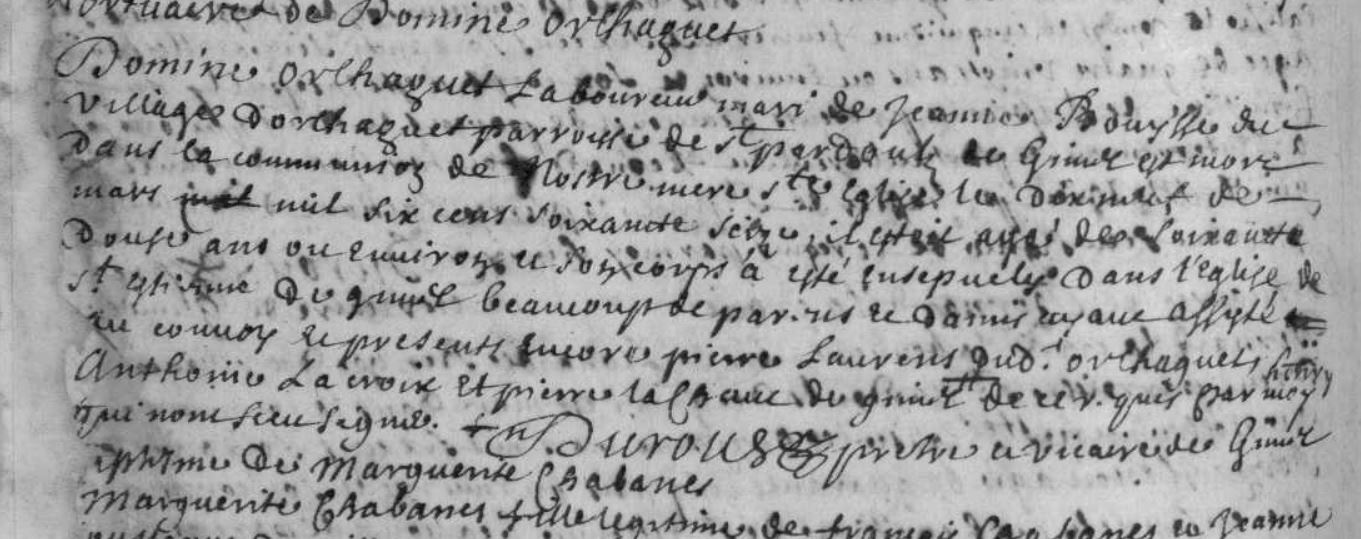 mortuaire de Domine Orlhaguet
Domine Orlhaguet Laboureur mari de Jeanne Bouysse du
village Dorlhaguet parroisse de st pardoulz de Gimel est mort
Dans la communion de Nostre mere ste Eglise le dixneuf de
mars mil six cens soixante seize, il estoit aagé de soixante
Douse ans ou environ et son corps a esté ensepuely Dans l'Eglise de
st estienne De gimel beaucoup de parens et damis ayant assysté
au convoy et presents encore pierre Laurens dud. orlhaguet,
Anthoine Lacroix Et pierre la de gimel par moy
qui nont sceu signé.
Duroux prestre et vicaire de Gimel
Baptisme De Marguerite Chabanes
Marguerite Chabanes fille legitime de françois Chabanes et Jeanne